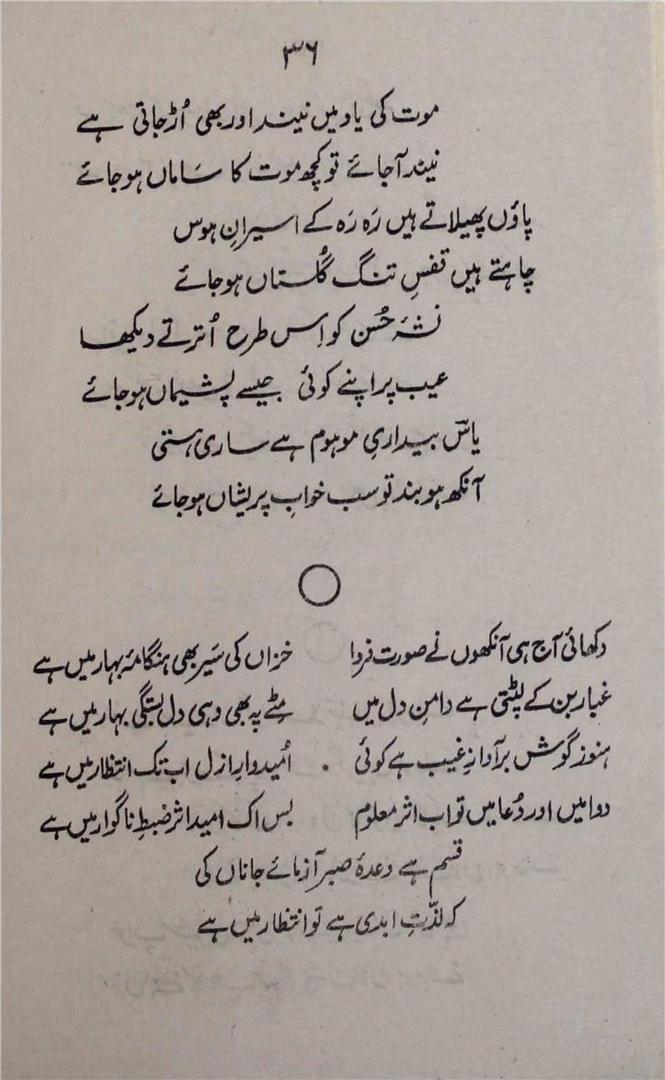 ۳۶
موت کی یاد میں نیند اور بھی اُڑ جاتی ہے
نیند آجائے تو کچھ موت کا سَاماں ہوجائے
پاؤں پھیلاتے ہیں رَہ رَہ کے اسیرانِ ہوس
چاہتے ہیں قفسِ تنگ گُلستاں ہوجائے
نشۂ حُسن کو اِس طرح اُترتے دیکھا
عیب پر اپنے کوئی جیسے پشیماں ہوجائے
یاسؔ بیداریِ موہوم ہے ساری ہستی
آنکھ ہو بند تو سب خوابِ پریشاں ہوجائے
دکھائی آج ہی آنکھوں نے صورت فردا خزاں کی سَیر بھی ہنگامۂ بہار میں ہے
غبار بن کے لپٹتی ہے دامنِ دل میں مٹے پہ بھی وہی دل بستگی بہار میں ہے
ہنوز گوش بر آوازِ غیب ہے کوئی اُمیدوارِ ازل اب تک انتظار میں ہے
دوا میں اور دُعا میں تو اب اثر معلوم بس اک امید اثر ضبطِ ناگوار میں ہے
قسم ہے وعدۂ صبر آزمائے جاناں کی
کہ لذّتِ ابدی ہے تو انتظار میں ہے